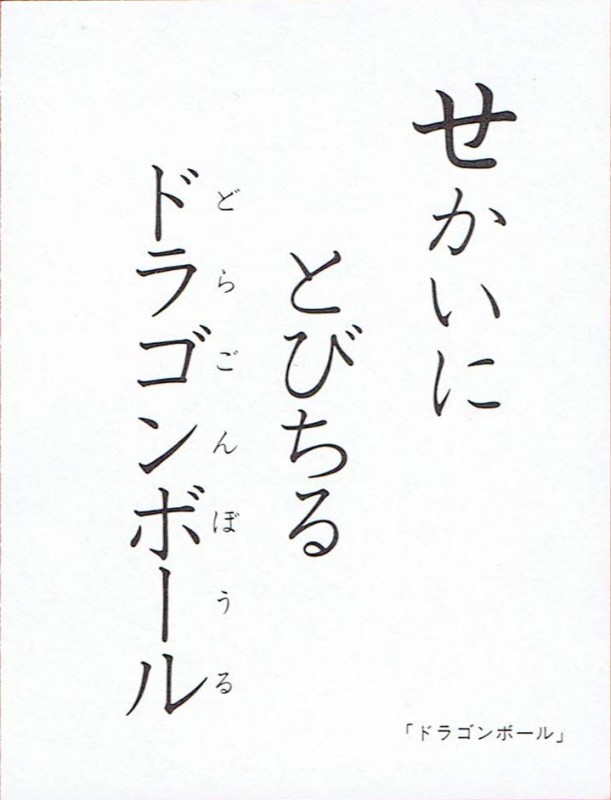 せかいに
とびちる
ドラゴンボール
どらごんぼうる
「ドラゴンボール」